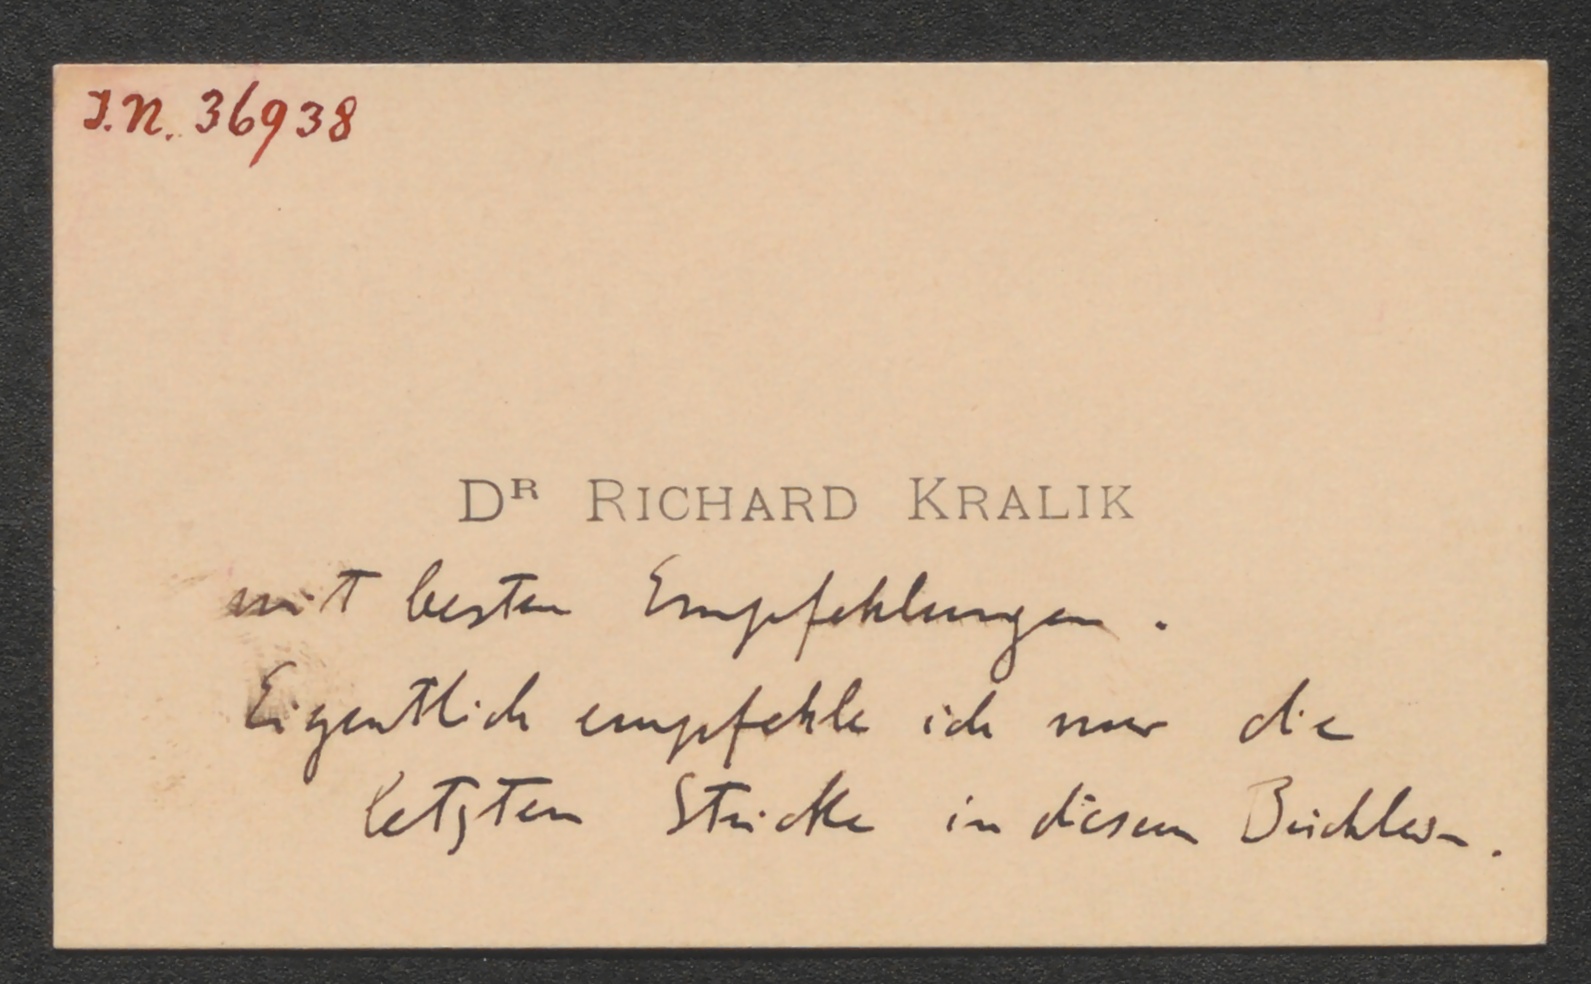 J.N. 36938
DR RICHARD KRALIK
mit besten Empfehlungen.
Eigentlich empfehle ich nur die
letzten Stücke in diesem Büchlein.